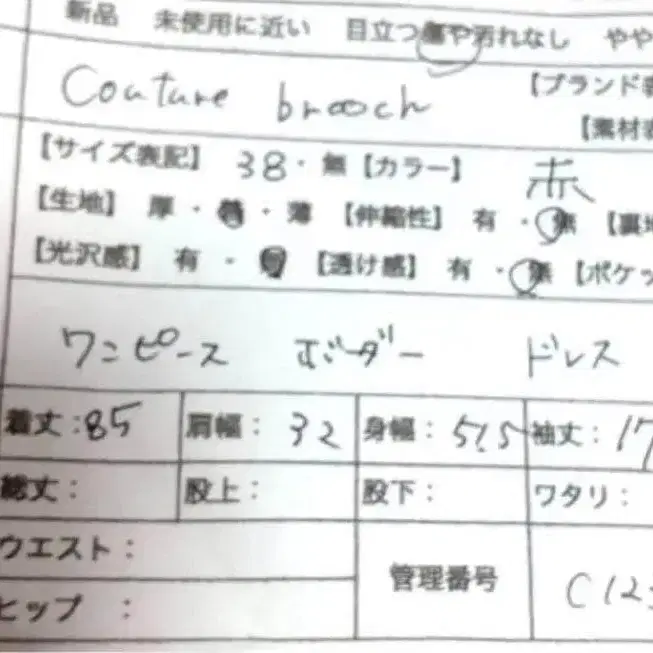 新品 未使用に近い 目立つ傷や汚れなし やや
Couture brooch 【ブランド表
【素材表
【サイズ表記】 38・無 【カラー】 赤
【生地】 厚・普・薄 【伸縮性】 有・無 【裏地
【光沢感】 有・無 【透け感】 有・無 【ポケッ
ワンピース ボーダー ドレス
着丈：85 肩幅：32 身幅：51.5 袖丈：17
総丈： 股上： 股下： ワタリ：
ウエスト：
管理番号 C12
ヒップ ：